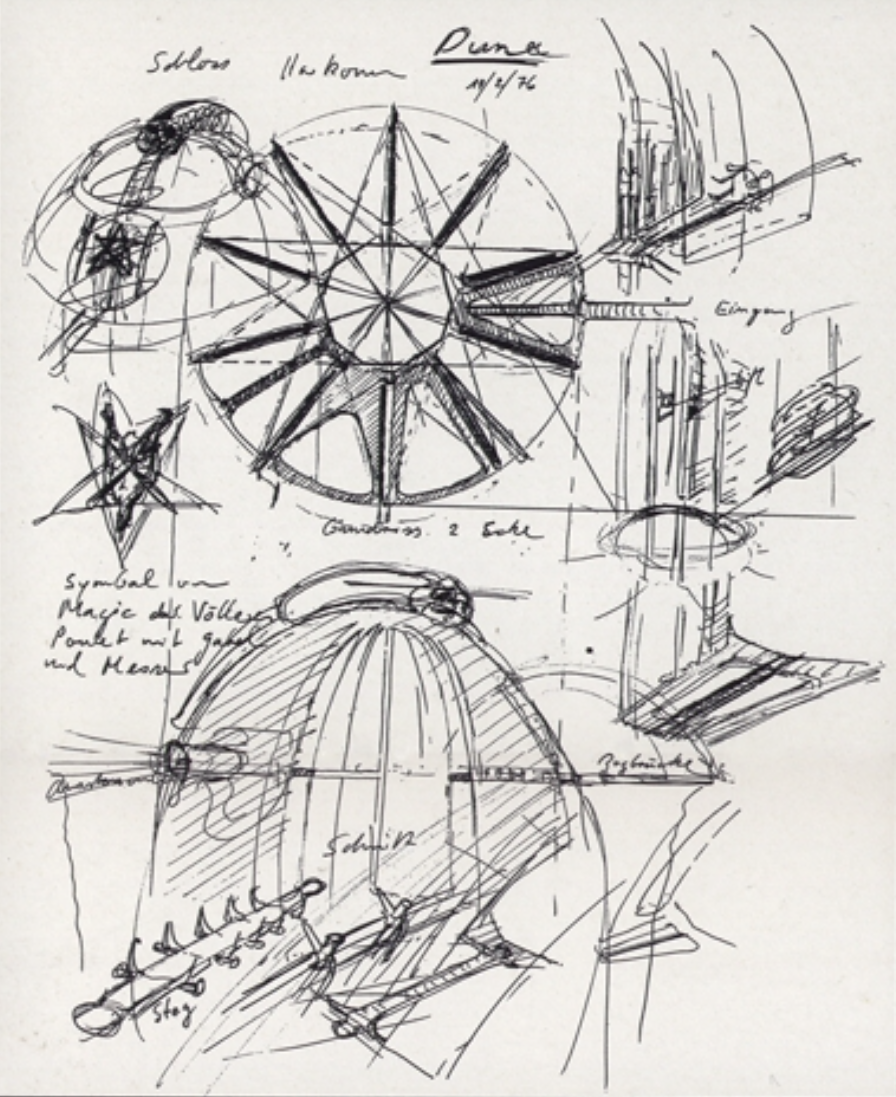 Schloss Harkonnen Dune
19/2/76
Eingang
Lift
Grundriss 2 Ecke
Symbol von
Magie des Völlerers
Poulet mit Gabel
und Messer
Zugbrücke
Schnitt
Steg